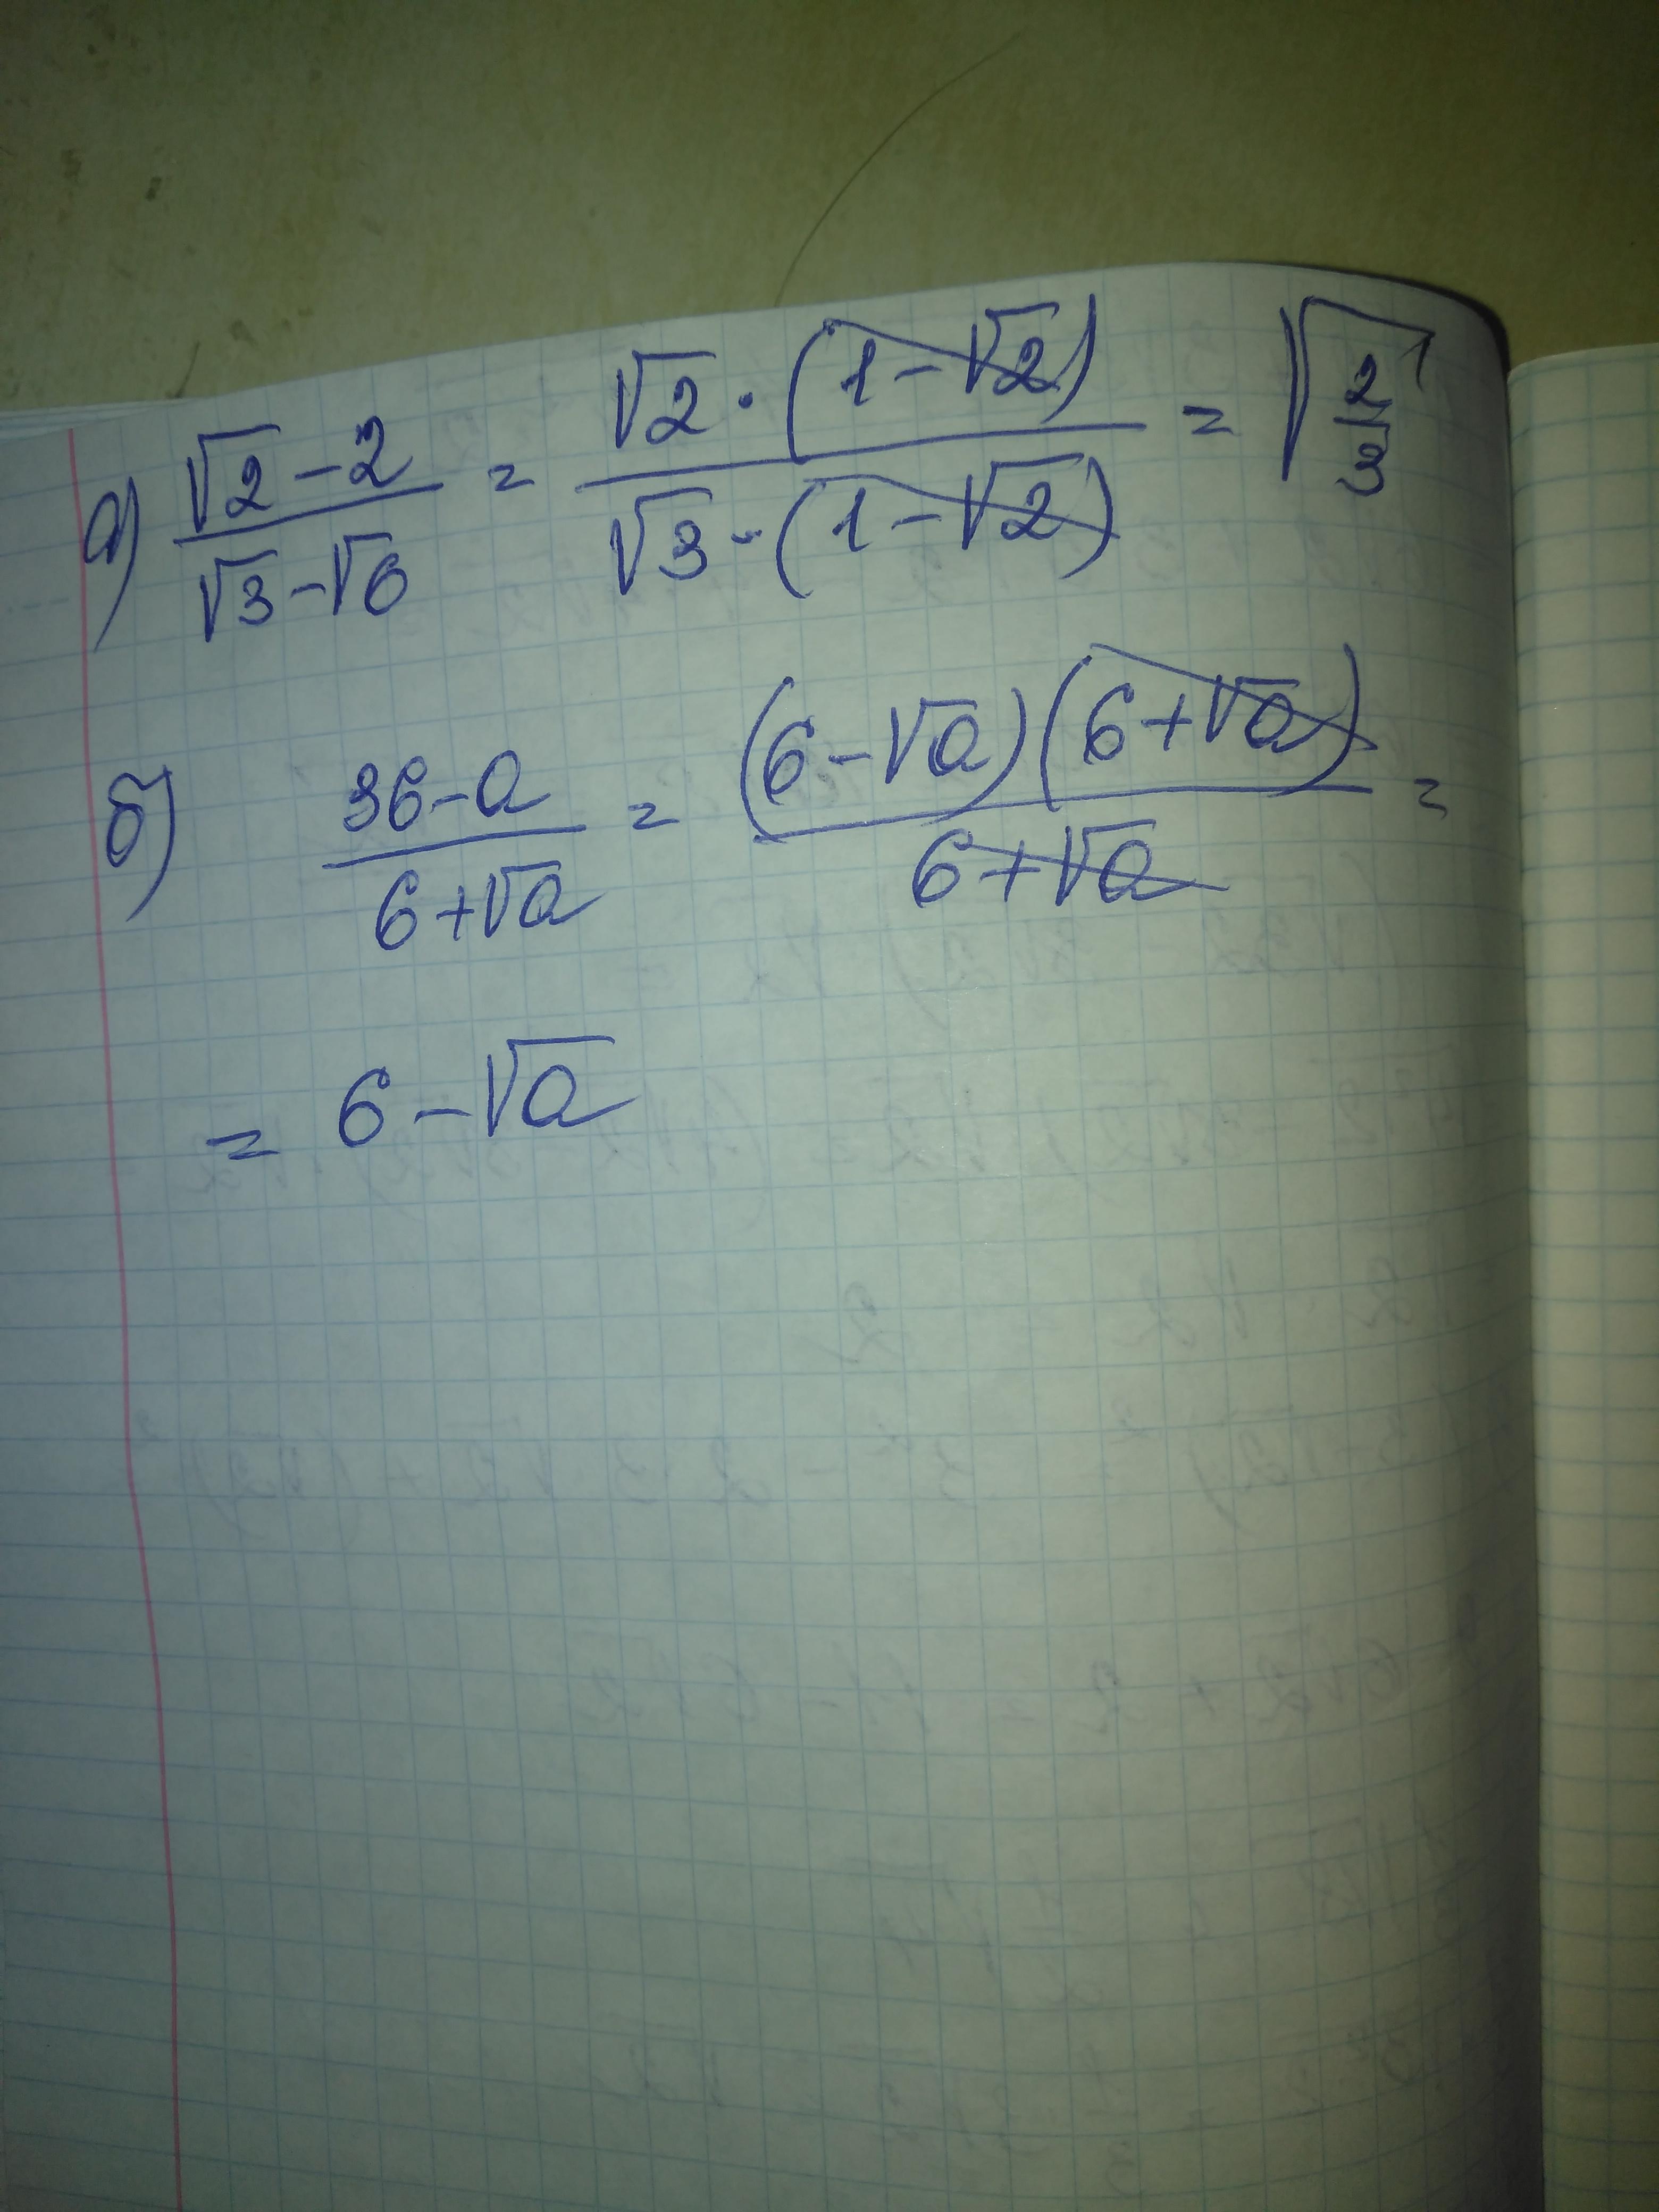 а) (√2-2)/(√3-√6) = (√2·(1-√2))/(√3·(1-√2)) = √(2/3)
б) (36-a)/(6+√a) = ((6-√a)(6+√a))/(6+√a) =
= 6-√a